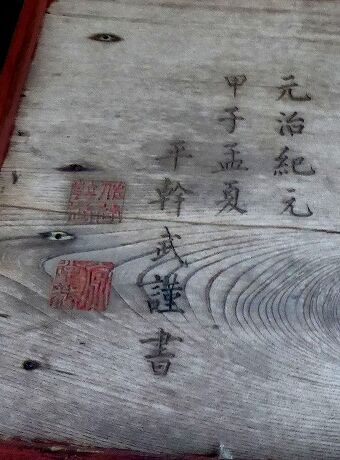 元治紀元
甲子孟夏
平幹武謹書